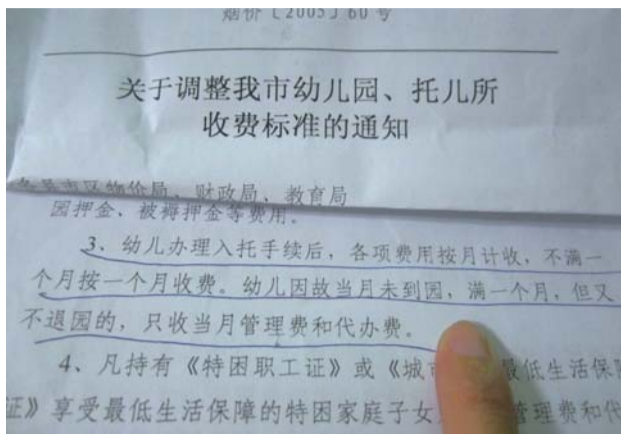 烟价〔2005〕60号
关于调整我市幼儿园、托儿所
收费标准的通知
各县市区物价局、财政局、教育局
园押金、被褥押金等费用。
3、幼儿办理入托手续后，各项费用按月计收，不满一
个月按一个月收费。幼儿因故当月未到园，满一个月，但又
不退园的，只收当月管理费和代办费。
4、凡持有《特困职工证》或《城 最低生活保
证》享受最低生活保障的特困家庭子女 管理费和代